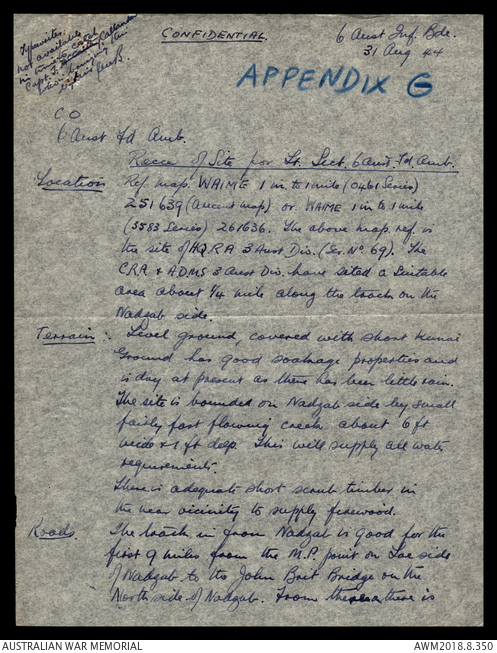 CONFIDENTIAL.
6 Aust Inf. Bde.
31 Aug 44
Typewriter
not available
in time to catch
Capt. F.
who is bringing this
APPENDIX G
CO
6 Aust Fd Amb.
Recce of Site for Lt. Sect. 6 Aust. Fd Amb.
Location Ref. map. WAIME 1 in to 1 mile (0461 Series)
251639 (Ancient map) or WAIME 1 in to 1 mile
(5583 Series) 261636. The above map ref. is
the site of HQ RA 3 Aust Div. (Ser. No 69). The
CRA & ADMS 3 Aust Div. have sited a suitable
area about ¼ mile along the track on the
Nadzab side.
Terrain: Level ground, covered with short kunai
Ground has good soakage properties and
is dry at present as there has been little rain.
The site is bounded on Nadzab side by small
fairly fast flowing creek about 6 ft
wide & 1 ft deep. This will supply all water
requirements.
There is adequate short scrub timber in
the near vicinity to supply firewood.
Roads. The track in from Nadzab is good for the
first 9 miles from the M.P. point on Lae side
of Nadzab to the John Brit Bridge on the
North side of Nadzab. From there there is
AUSTRALIAN WAR MEMORIAL
AWM2018.8.350